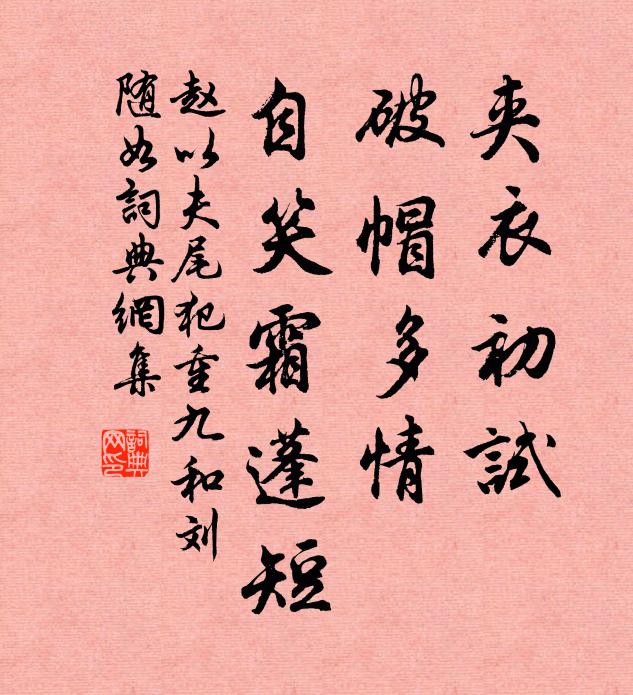 夹衣初试
破帽多情
自笑霜蓬短
赵以夫尾犯重九和刘
随如詞典網集
詞典
网印